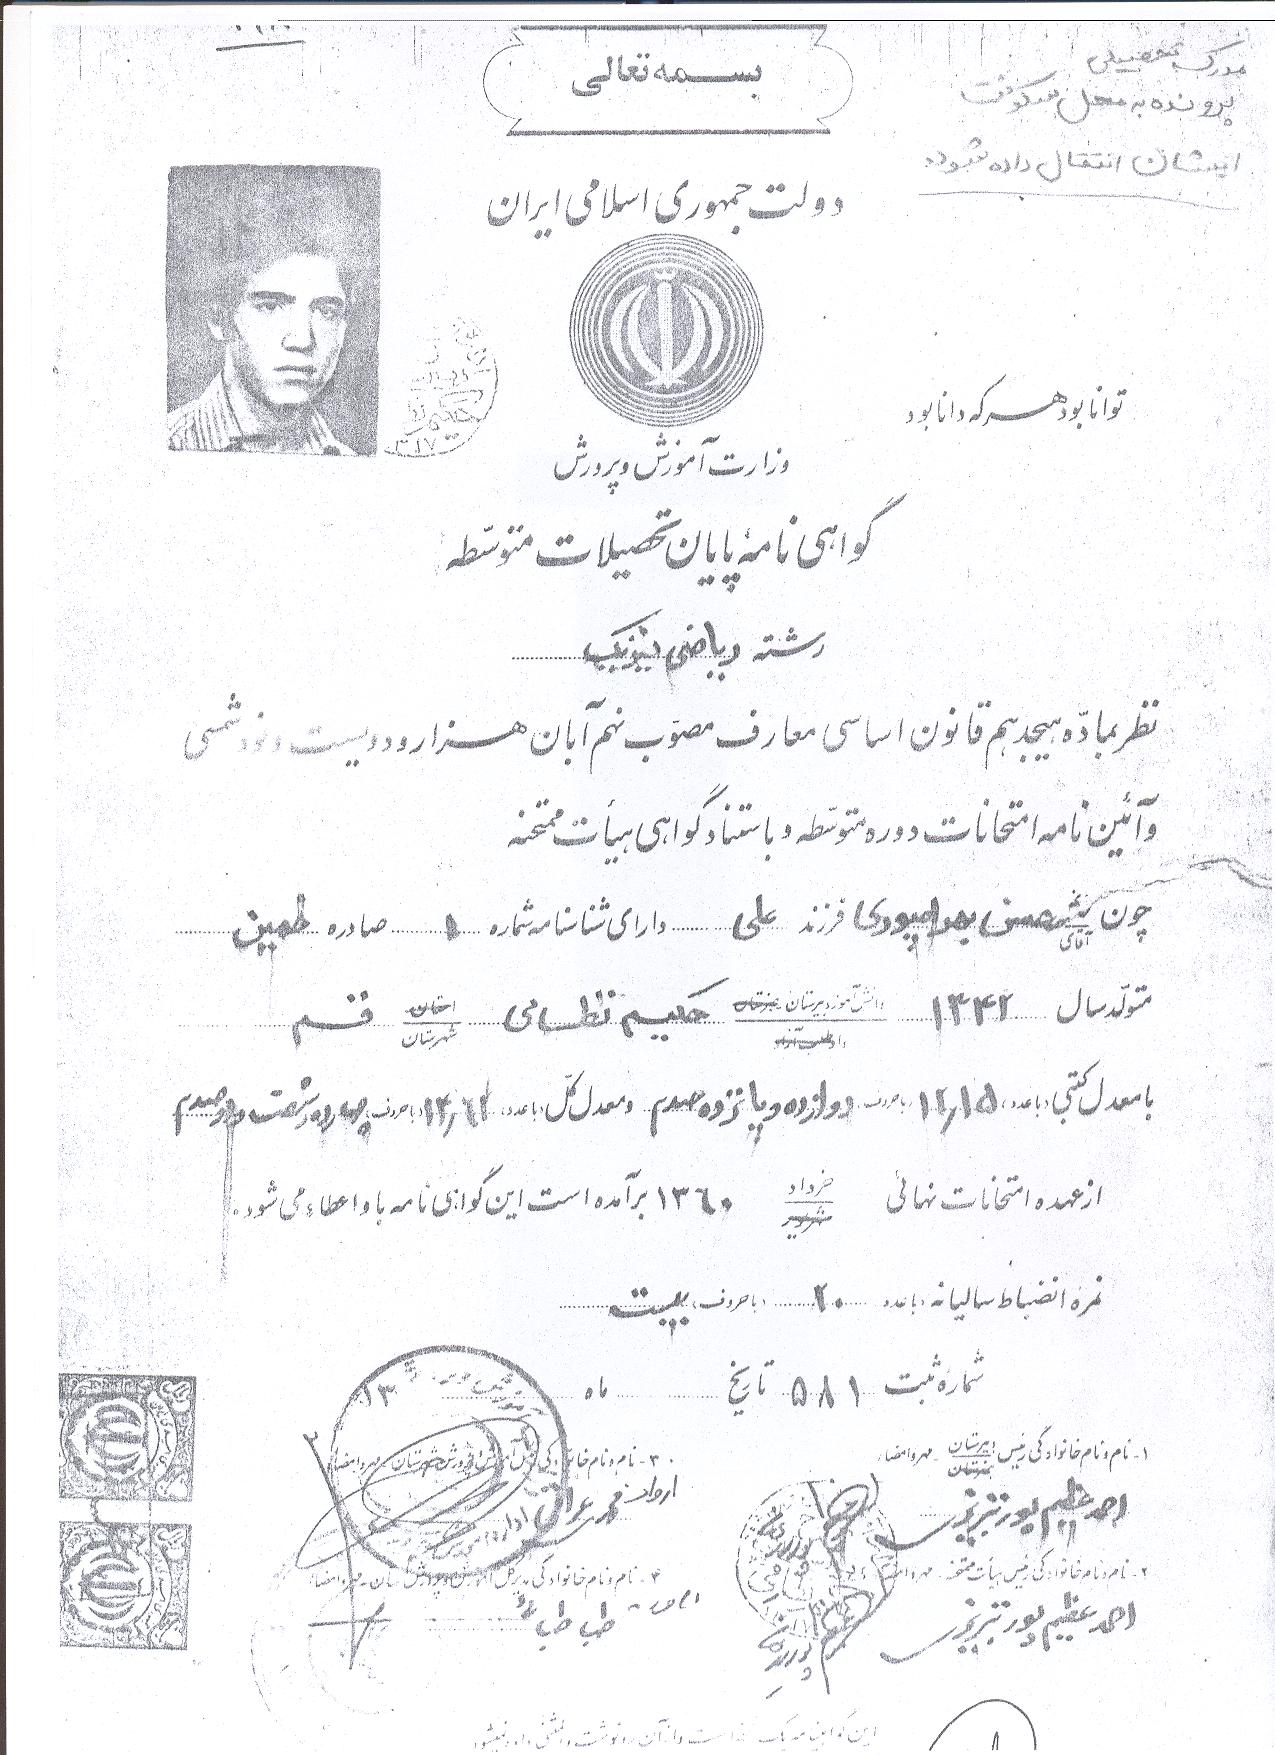 بسمه تعالی
مدرک تحصیلی
پرونده به محل سکونت
ایشان انتقال داده شود.
دولت جمهوری اسلامی ایران
توانا بود هر که دانا بود
وزارت آموزش و پرورش
گواهی نامهٔ پایان تحصیلات متوسّطه
رشته ریاضی فیزیک
نظر بمادّه هیجدهم قانون اساسی معارف مصوّب نهم آبان هزار و دویست و نود شمسی
و آئین نامه امتحانات دوره متوسّطه و باستناد گواهی هیأت ممتحنه
چون آقای حسن بهرامپوری فرزند علی دارای شناسنامه شماره ۱ صادره خمین
متولّد سال ۱۳۴۲ دانش آموز دبیرستان هنرستان داوطلب آزاد حکیم نظامی استان شهرستان قم
با معدل کتبی (با عدد) ۱۲٫۱۵ (با حروف) دوازده و پانزده صدم و معدل کلّ (با عدد) (با حروف) شصت صدم
از عهده امتحانات نهائی خرداد شهریور ۱۳۶۰ برآمده است این گواهی نامه باو اعطاء می شود.
نمره انضباط سالیانه (با عدد) ۲۰ (با حروف) بیست
شمارهٔ ثبت ۵۸۱ تاریخ ماه ۱۳
۱- نام و نام خانوادگی رئیس دبیرستان هنرستان - مهر و امضاء
احمد عظیم پور تبریزی
۲- نام و نام خانوادگی رئیس هیأت ممتحنه - مهر و امضاء
احمد عظیم پور تبریزی
۳- نام و نام خانوادگی رئیس آموزش و پرورش شهرستان - مهر و امضاء
محمد عراقی
۴- نام و نام خانوادگی مدیرکل آموزش و پرورش استان - مهر و امضاء
طباطبائی